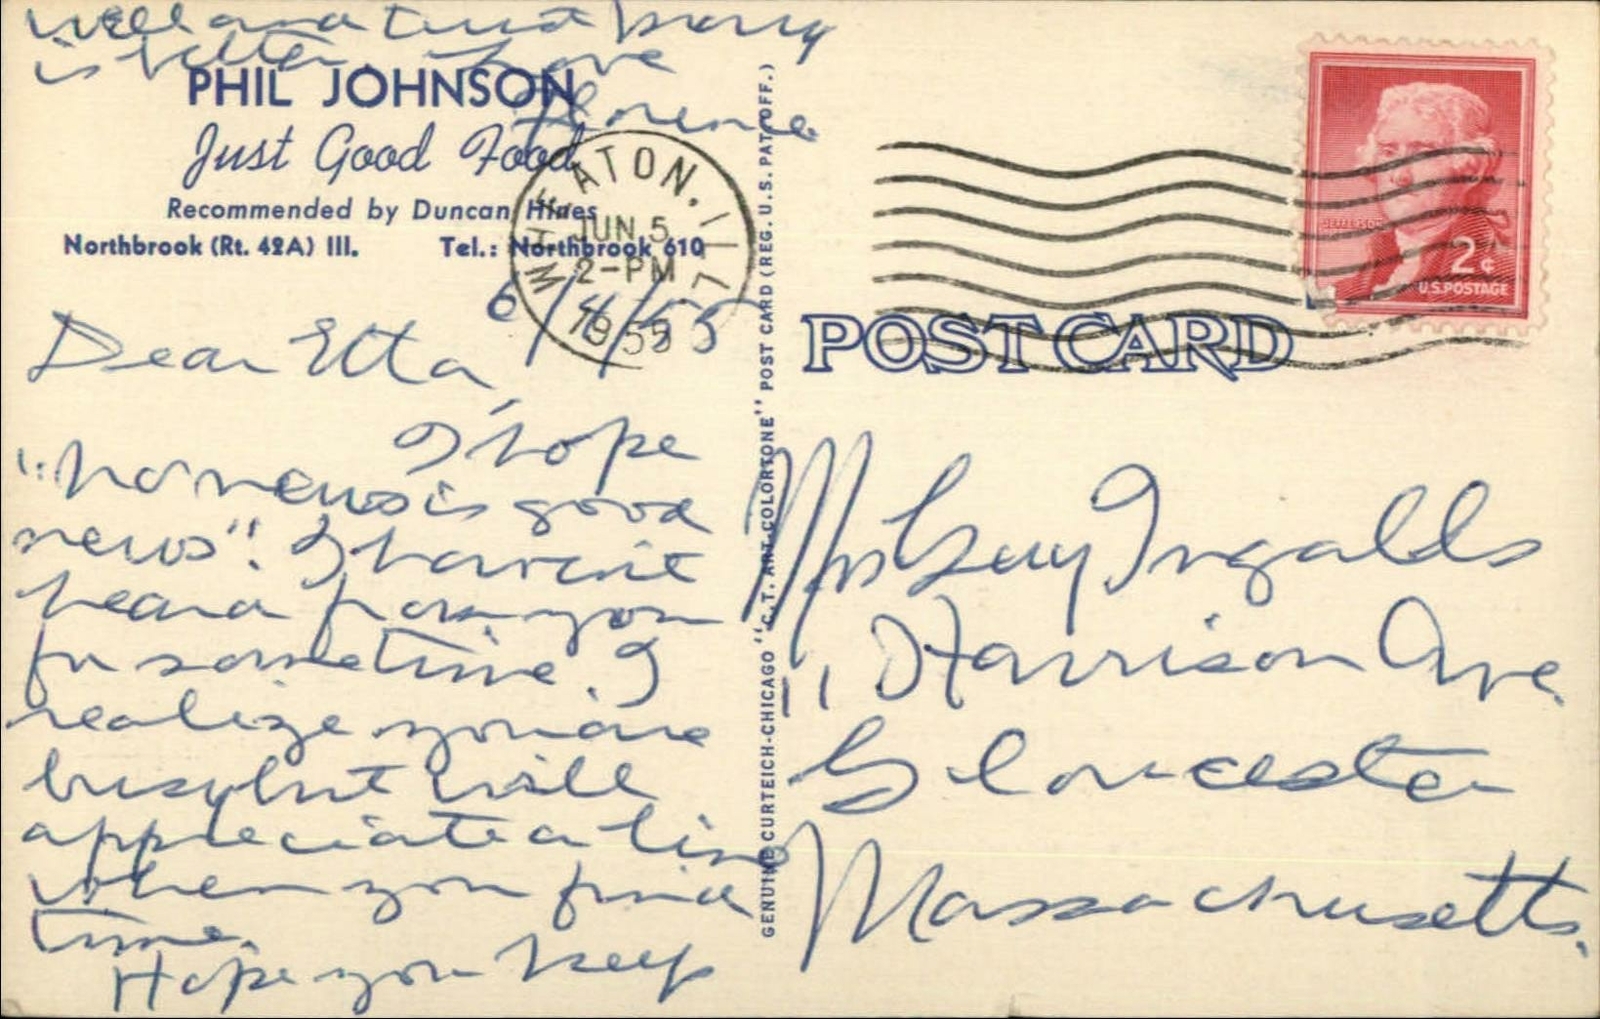 well and trust
is better Love
Florence
PHIL JOHNSON
Just Good Food
Recommended by Duncan Hines
Northbrook (Rt. 42A) Ill. Tel.: Northbrook 610
WHEATON, ILL
JUN 5
2-PM
1955
6/4/55
Dear Etta,
I hope
"no news is good
news". I havent
heard from you
for sometime. I
realize you are
busy but will
appreciate a line
when you find
time.
Hope you keep
GENUINE CURTEICH-CHICAGO "C.T. ART-COLORTONE" POST CARD (REG. U.S. PAT. OFF.)
JEFFERSON
2¢
U.S. POSTAGE
POST CARD
Mrs Guy Ingalls
11 Harrison Ave.
Gloucester
Massachusetts.